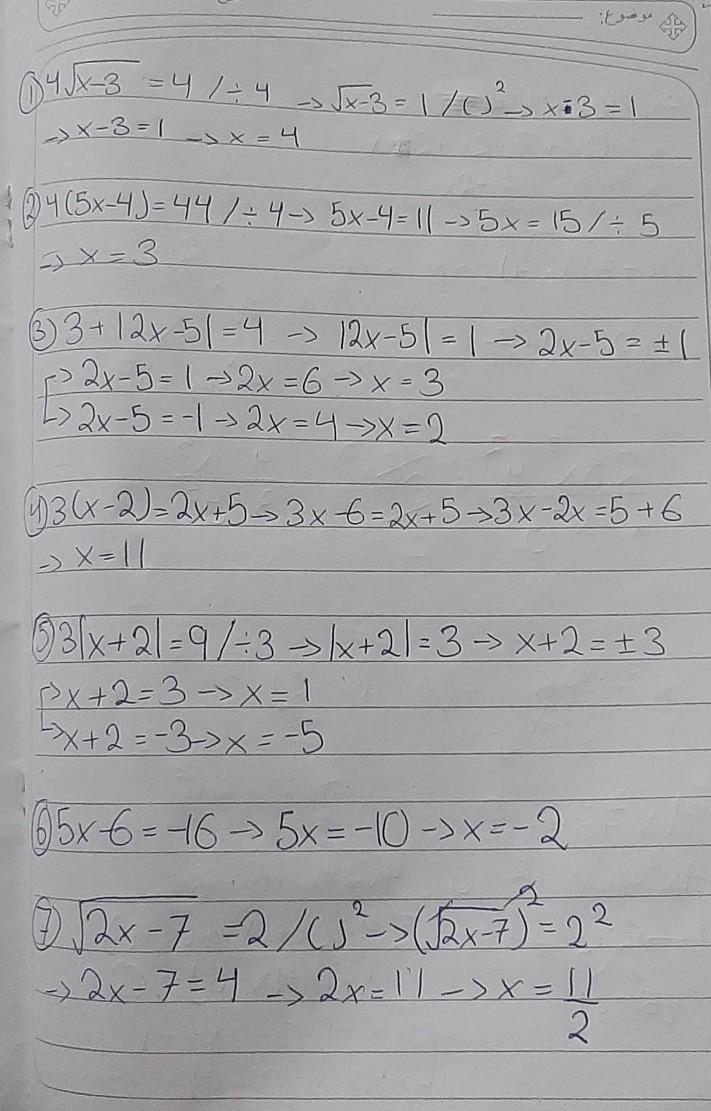 موضوع:
① 4√(x-3) = 4 / ÷ 4 → √x-3 = 1 / ( )² → x-3 = 1
→ x-3=1 → x = 4
② 4(5x-4)=44 / ÷ 4 → 5x-4=11 → 5x = 15 / ÷ 5
→ x = 3
③ 3+|2x-5|=4 → |2x-5|=1 → 2x-5=±1
→ 2x-5=1 → 2x=6 → x=3
→ 2x-5=-1 → 2x=4 → x=2
④ 3(x-2)=2x+5 → 3x-6=2x+5 → 3x-2x=5+6
→ x=11
⑤ 3|x+2|=9 / ÷3 → |x+2|=3 → x+2=±3
→ x+2=3 → x=1
→ x+2=-3 → x=-5
⑥ 5x-6=-16 → 5x=-10 → x=-2
⑦ √(2x-7) =2 / ( )² → (√(2x-7))²=2²
→ 2x-7=4 → 2x=11 → x=11/2